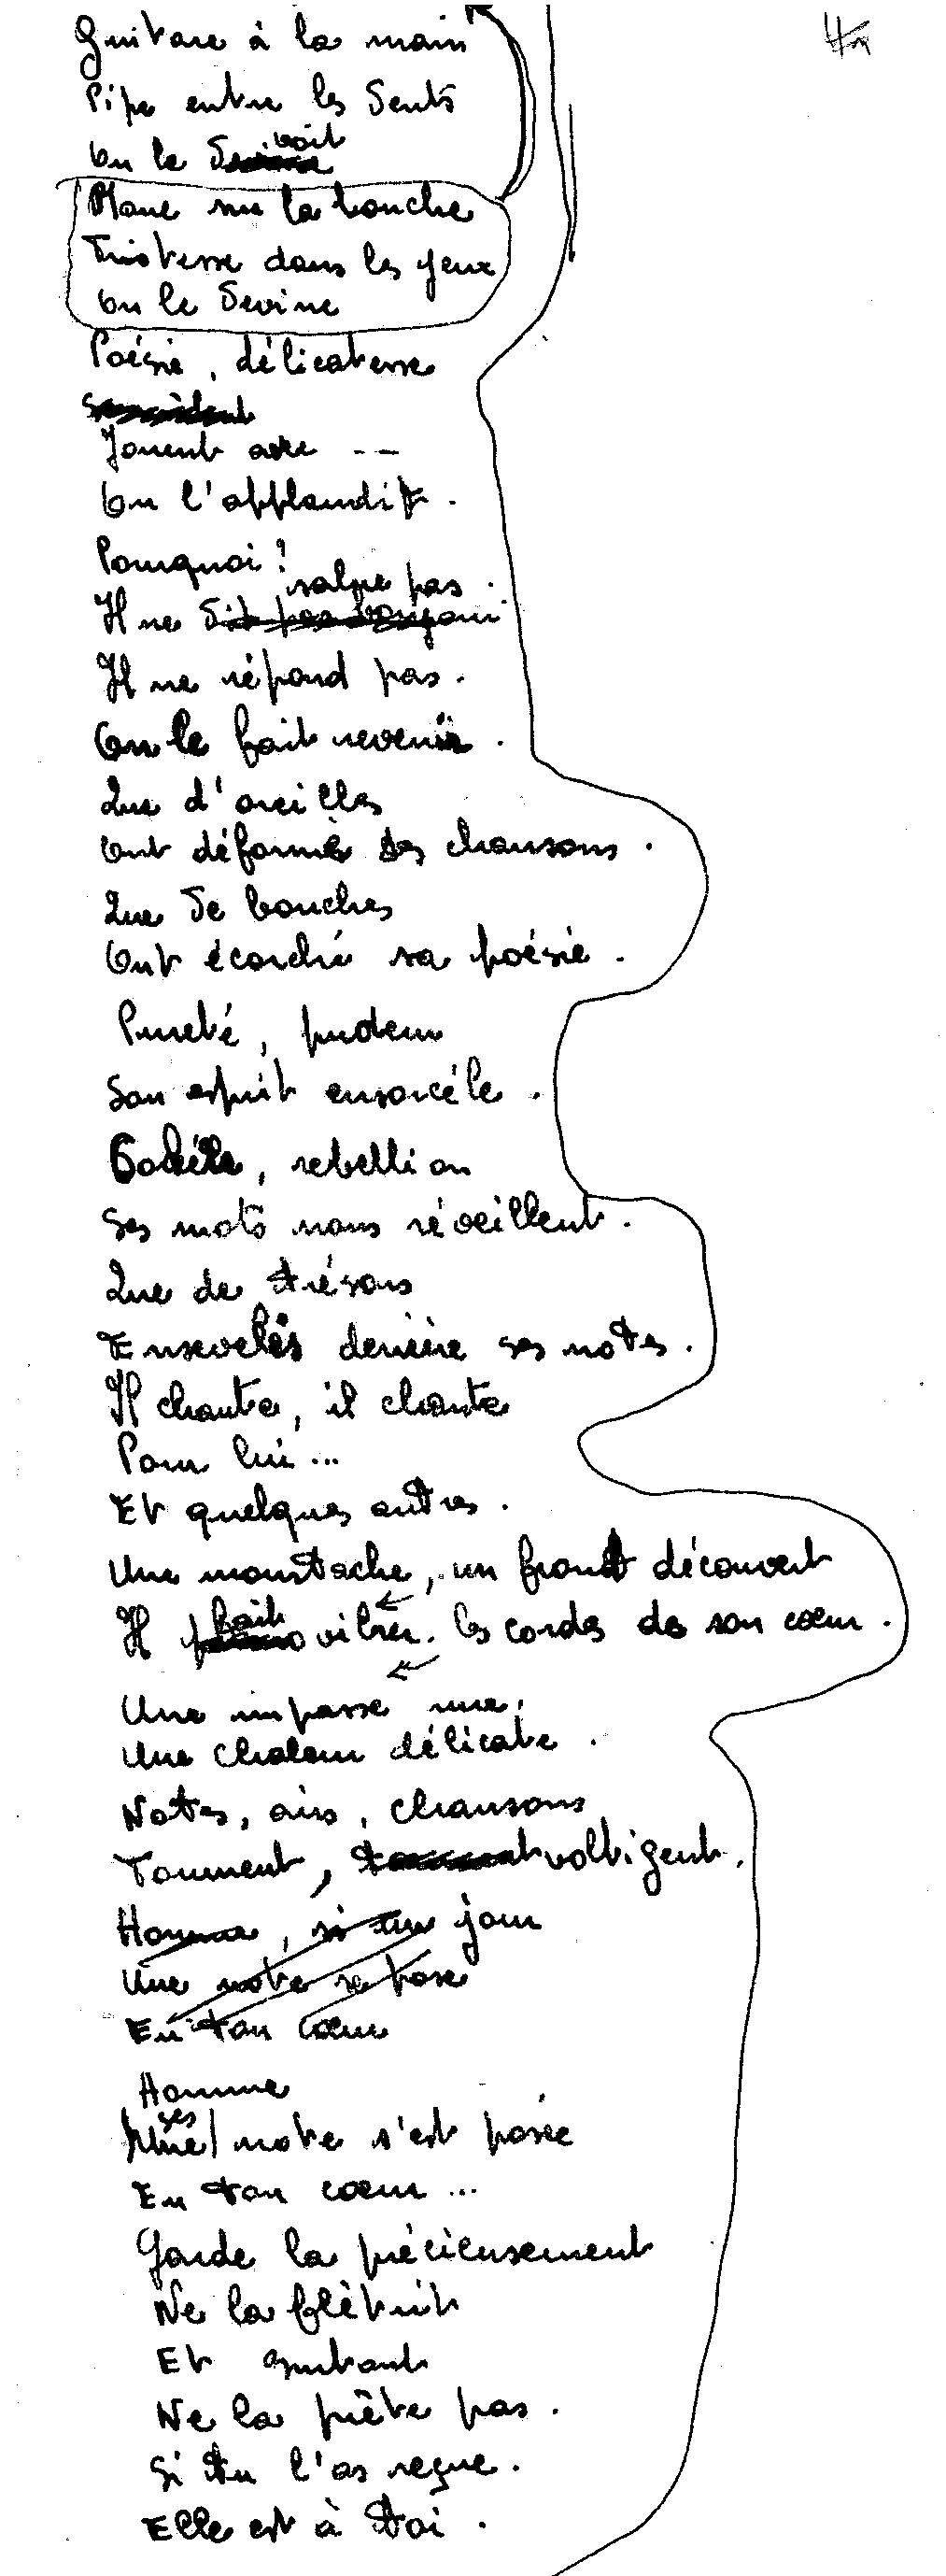 Guitare à la main
Pipe entre les dents
On le voit
Moue sur la bouche
Tristesse dans les yeux
On le devine
Poésie, délicatesse
Jouent avec --
On l'applaudit.
Pourquoi ?
Il ne salue pas.
Il ne répond pas.
On le fait revenir.
Que d'oreilles
Ont déformé ses chansons.
Que de bouches
Ont écorché sa poésie.
Pureté, pudeur
Son esprit ensorcéle.
rebellion
Ses mots nous réveillent.
Que de trésors
Ensevelis derrière ses notes.
Il chante, il chante
Pour lui...
Et quelques autres.
Une moustache, un front découvert
Il fait vibrer les cordes de son cœur.
Une impasse
Une chaleur délicate.
Notes, airs, chansons
Tournent, voltigent.
Homme, si un jour
Une note se pose
En ton cœur
Homme
ses note s'est posée
En ton cœur...
Garde la précieusement
Ne la flètrit
Et surtout
Ne la prête pas.
Si tu l'as reçue.
Elle est à toi.